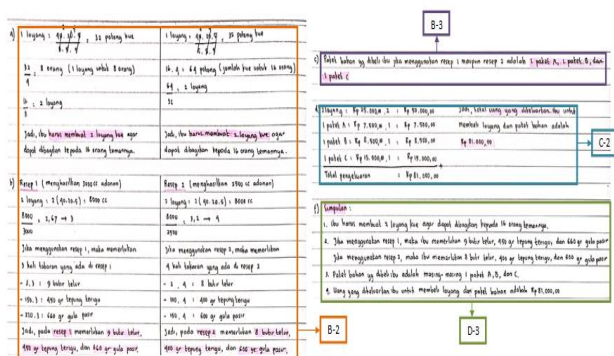 B-3
a) 1 loyang : 40.20.4 : 32 potong kue
5.5.4
32 : 8 orang (1 loyang untuk 8 orang)
4
16 : 2 loyang
8
Jadi, ibu harus membuat 2 loyang kue agar
dapat dibagikan kepada 16 orang temannya.
1 loyang : : 32 potong kue
16.4 : 64 potong (jumlah kue untuk 16 orang)
64 : 2 loyang
32
Jadi, ibu harus membuat 2 loyang kue agar
dapat dibagikan kepada 16 orang temannya.
b) Resep 1 (menghasilkan 3000 cc adonan)
2 loyang : 2(40.20.5) : 8000 cc
8000 : 2,67 → 3
3000
Jika menggunakan resep 1, maka memerlukan
3 kali takaran yang ada di resep 1
- 3.3 : 9 butir telur
- 150.3 : 450 gr tepung terigu
- 220.3 : 660 gr gula pasir
Jadi, pada resep 1 memerlukan 9 butir telur,
450 gr tepung terigu, dan 660 gr gula pasir.
Resep 2 (menghasilkan 2500 cc adonan)
2 loyang : 2(40.20.5) : 8000 cc
8000 : 3,2 → 4
2500
Jika menggunakan resep 2, maka memerlukan
4 kali takaran yang ada di resep 2
- 2.4 : 8 butir telur
- 100.4 : 400 gr tepung terigu
- 150.4 : 600 gr gula pasir
Jadi, pada resep 2 memerlukan 8 butir telur,
400 gr tepung terigu, dan 600 gr gula pasir.
B-2
c) Paket bahan yg dibeli ibu jika menggunakan resep 1 maupun resep 2 adalah 1 paket A, 1 paket B, dan
1 paket C
2 loyang : Rp 25.000,00 . 2 : Rp 50.000,00
1 paket A : Rp 7.500,00 . 1 : Rp 7.500,00
1 paket B : Rp 8.500,00 . 1 : Rp 8.500,00
1 paket C : Rp 15.000,00 . 1 : Rp 15.000,00
Total pengeluaran : Rp 81.000,00
Jadi, total uang yang dikeluarkan ibu untuk
membeli loyang dan paket bahan adalah
Rp 81.000,00
C-2
Simpulan :
1. Ibu harus membuat 2 loyang kue agar dapat dibagikan kepada 16 orang temannya.
2. Jika menggunakan resep 1, maka ibu memerlukan 9 butir telur, 450 gr tepung terigu, dan 660 gr gula pasir
Jika menggunakan resep 2, maka ibu memerlukan 8 butir telur, 400 gr tepung terigu, dan 600 gr gula pasir
3. Paket bahan yg dibeli ibu adalah masing-masing 1 paket A, B, dan C.
4. Uang yang dikeluarkan ibu untuk membeli loyang dan paket bahan adalah Rp 81.000,00
D-3